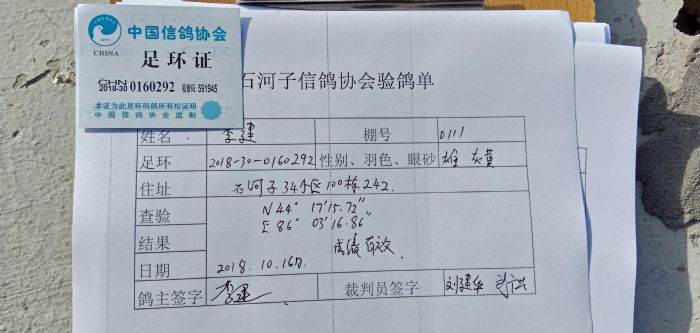 中国信鸽协会
CHINA
足环证
CHN
2018-30 0160292 校验码:591945
本证为此足环码鸽所有权证明
中国信鸽协会监制
石河子信鸽协会验鸽单
姓名 李建 棚号 0111
足环 2018-30-0160292 性别、羽色、眼砂 雄 灰黄
住址 石河子34小区100栋242.
查验 N44° 17'15.72"
E86° 03'16.86"
结果 成绩有效
日期 2018.10.16日
鸽主签字 李建 裁判员签字 刘建华